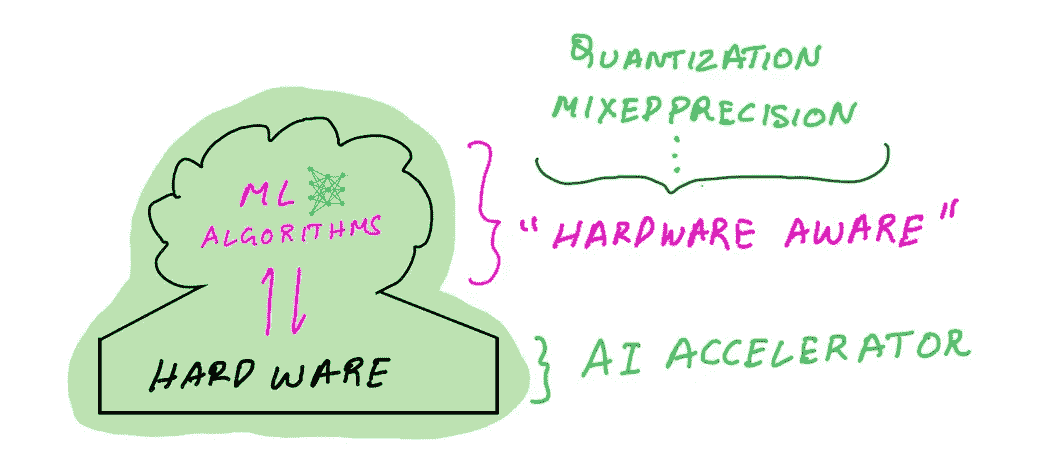 QUANTIZATION
MIXEDPRECISION
ML
ALGORITHMS
"HARDWARE AWARE"
HARDWARE
AI ACCELERATOR